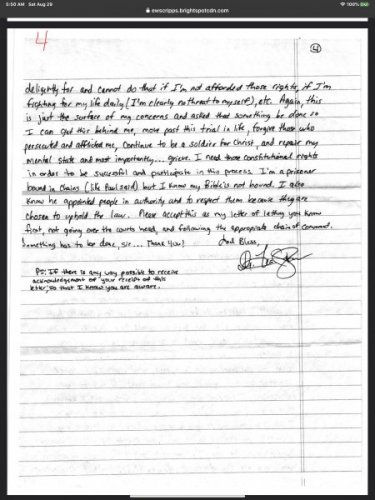 5:50 AM Sat Aug 29
100%
ewscripps.brightspotcdn.com
4
4
deligently for and cannot do that if I'm not afforded those rights, if I'm
fighting for my life daily (I'm clearly no threat to myself), etc. Again, this
is just the surface of my concerns and asked that something be done so
I can get this behind me, move past this trial in life, forgive those who
persecuted and afflicted me, continue to be a soldier for Christ, and repair my
mental state and most importantly... grieve. I need those constitutional rights
in order to be successful and participate in this process. I'm a prisoner
bound in chains (like Paul said) but I know my Bible is not bound. I also
know he appointed people in authority and to respect them because they are
chosen to uphold the law. Please accept this as my letter of letting you know
first, not going over the courts head, and following the appropriate chain of command.
Something has to be done, sir... Thank You!
God Bless,
PS: If there is any way possible to receive
acknowledgement of your receipt of this
letter, so that I know you are aware.